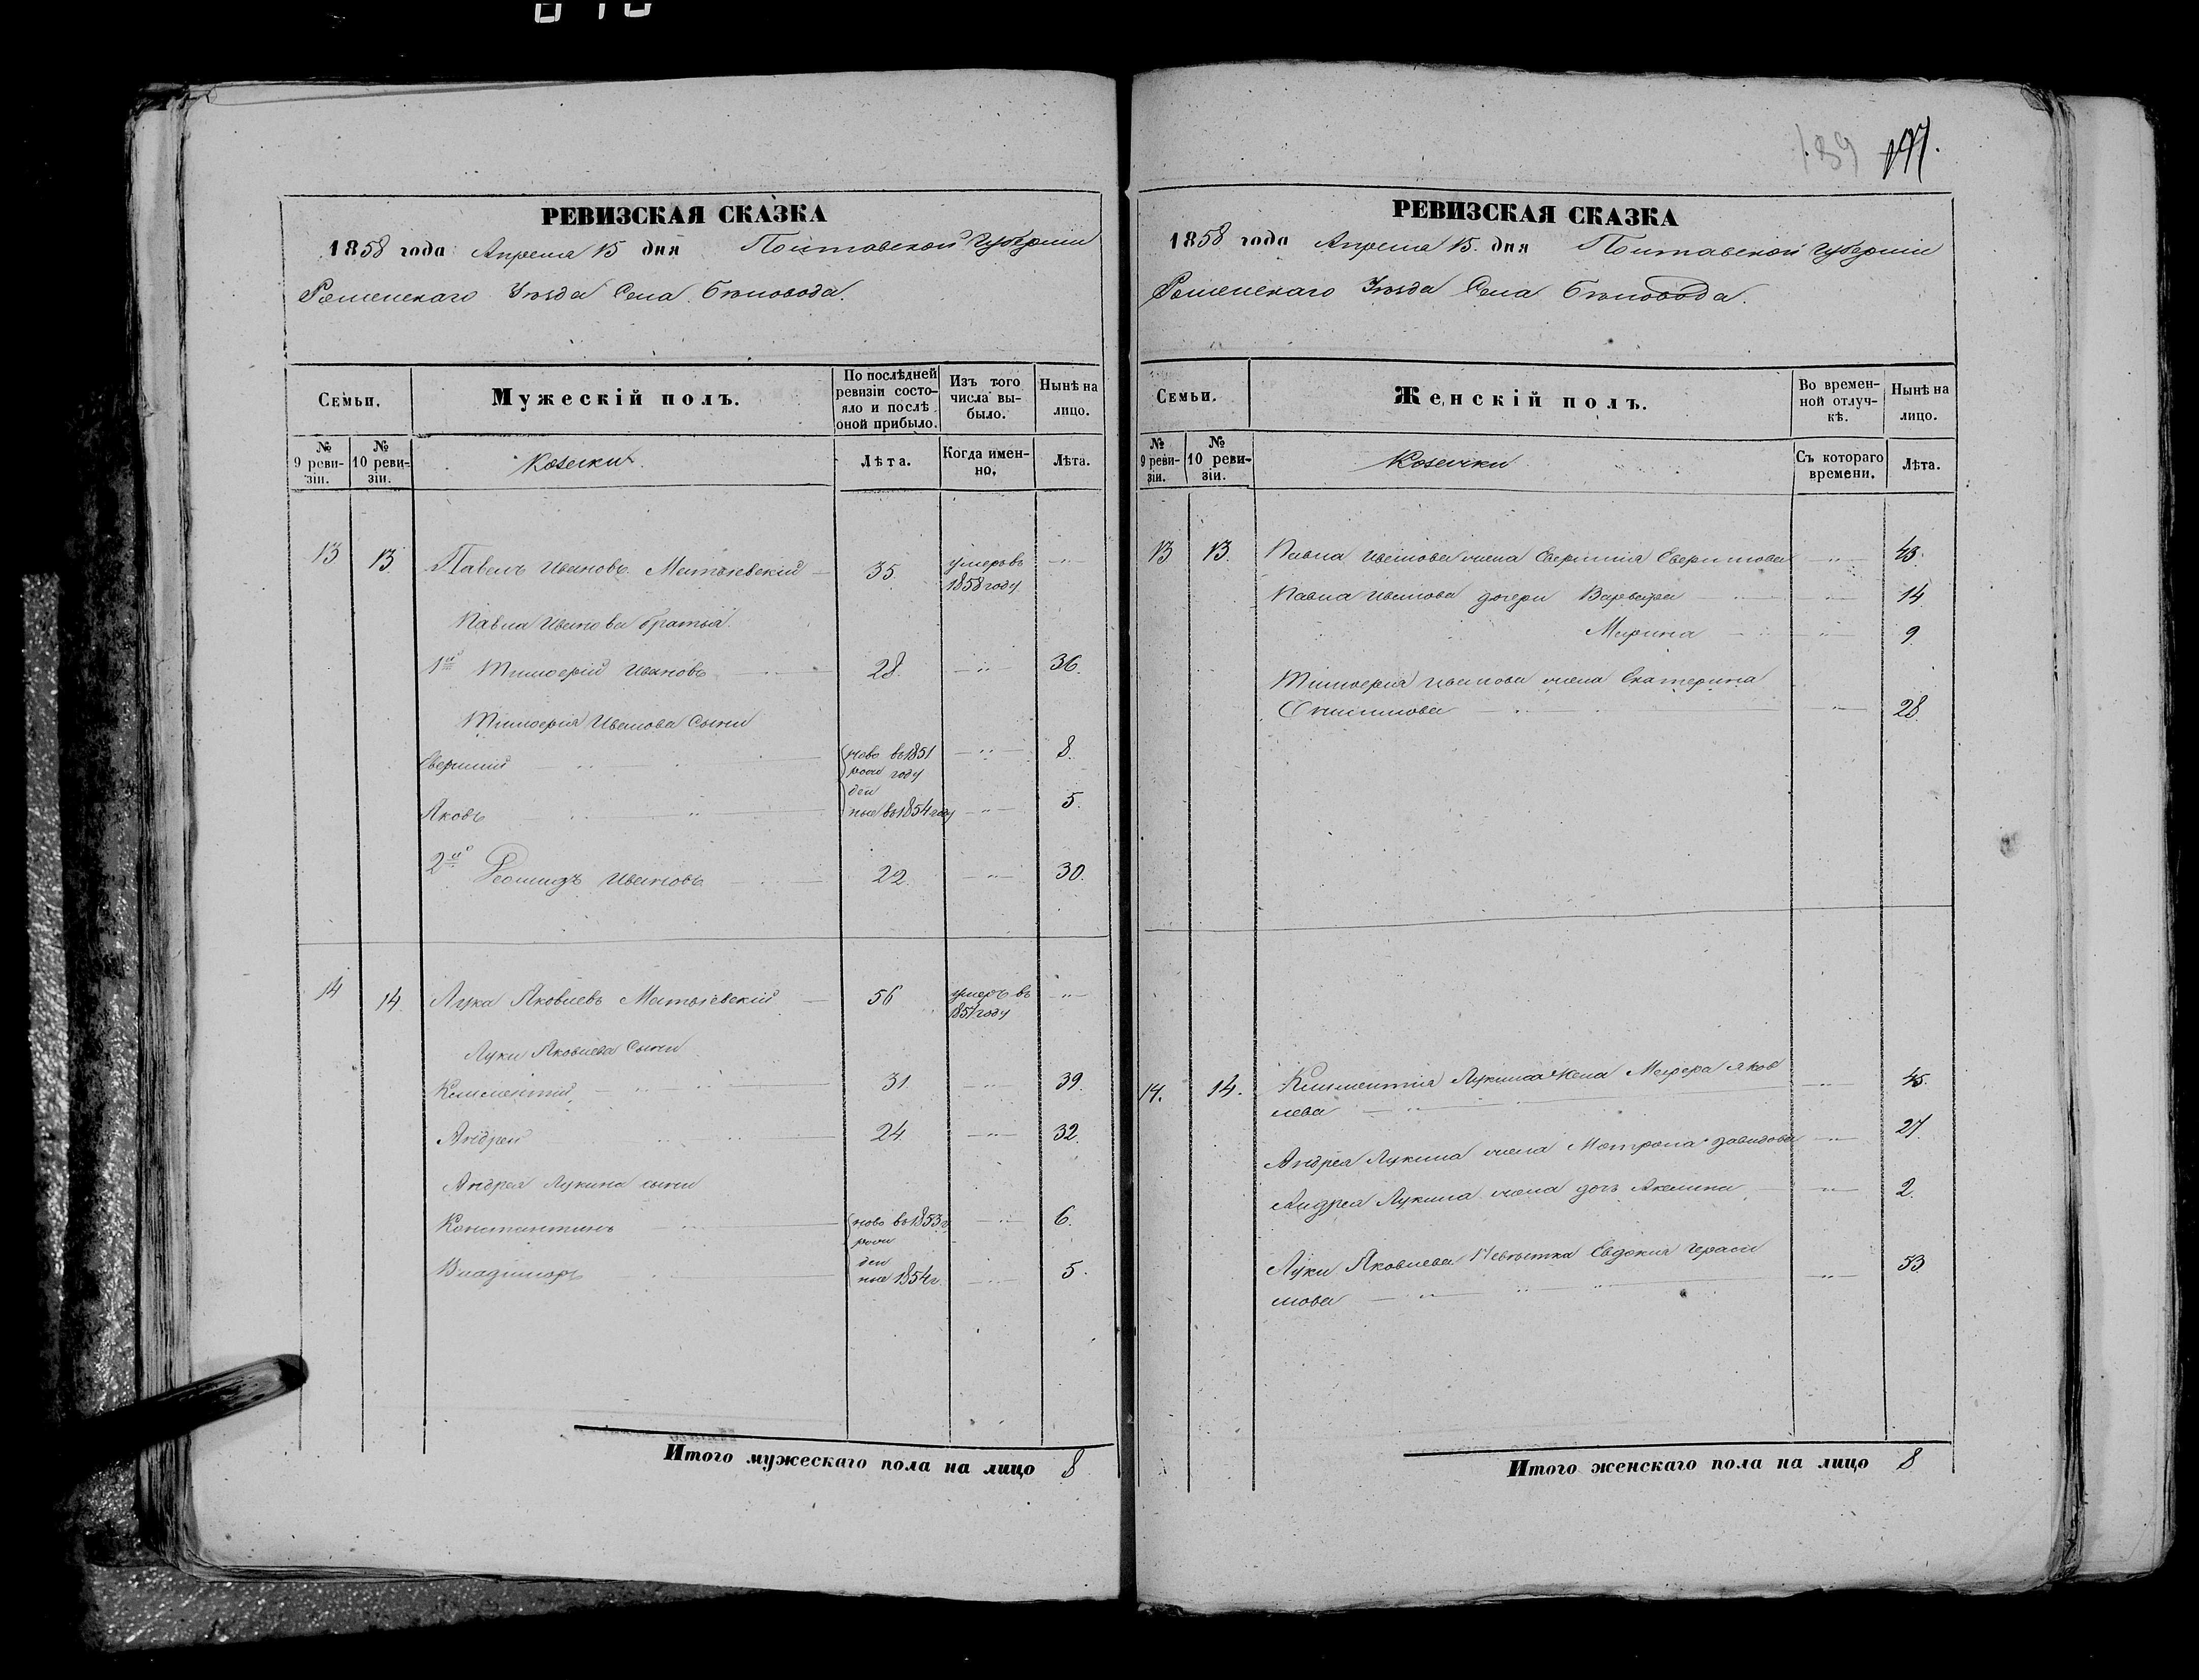 189
РЕВИЗСКАЯ СКАЗКА
1858 года Апреля 15 дня Полтавской Губернии
Роменскаго Уѣзда Села Бѣловода.
Семьи.
Мужескій полъ.
По послѣдней ревизіи состояло и послѣ оной прибыло.
Изъ того числа выбыло.
Нынѣ на лицо.
№ 9 ревизіи.
№ 10 ревизіи.
Козаки
Лѣта.
Когда именно.
Лѣта.
13 13. Павелъ Ивановъ Матыевскій 35. умеръ въ 1858 году —"—
Павла Иванова братья
1й Тимофей Ивановъ 28. —"— 36.
Тимофея Иванова Сыны
ново въ 1851 —"— 8.
рож году
Яковъ ден
ные въ 1854 году —"— 5.
2й Леонидъ Ивановъ 22. —"— 30.
14 14. Лука Яковлевъ Матыевскій 56 умеръ въ 1857 году —"—
Луки Яковлева Сыны
Климентій 31. —"— 39.
Андрей 24. —"— 32.
Андрея Лукина сыны
Константинъ ново въ 1853 г. —"— 6.
рож
Владиміръ ден
ные 1854 г. —"— 5.
Итого мужескаго пола на лицо 8
РЕВИЗСКАЯ СКАЗКА
1858 года Апреля 15. дня Полтавской Губерніи
Роменскаго Уѣзда Села Бѣловода.
Семьи.
Женскій полъ.
Во временной отлучкѣ.
Нынѣ на лицо.
№ 9 ревизіи.
№ 10 ревизіи.
Козачки
Съ котораго времени.
Лѣта.
13 13. Павла Иванова жена —"— 43.
Павла Иванова дочери Варвара —"— 14
Марина —"— 9.
Иванова жена Екатерина
—"— 28
14. 14. Климентія Лукина жена Яков
лева —"— 45.
Андрея Лукина жена Мотрона Давидова —"— 27
Андрея Лукина жена дочь Акелина —"— 2.
Луки Яковлева Невѣстка Евдокия Гераси
мова —"— 53.
Итого женскаго пола на лицо 8